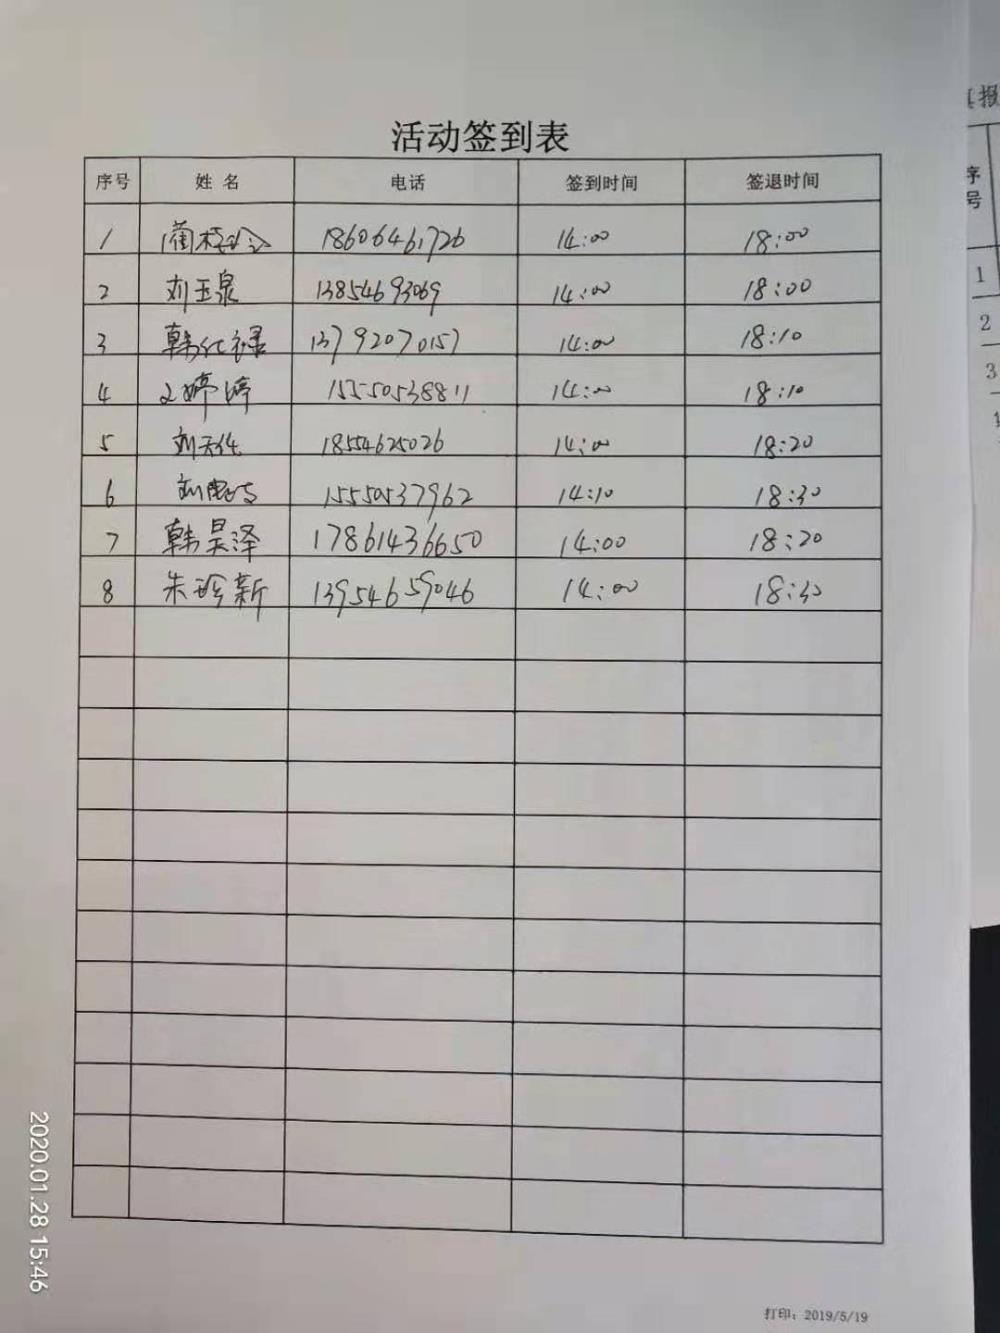 活动签到表
序号 姓名 电话 签到时间 签退时间
1 18606461726 14:00 18:00
2 刘玉泉 13854693069 14:00 18:00
3 韩化禄 13792070157 14:00 18:10
4 婷婷 15550538811 14:00 18:10
5 刘天佐 18554625026 14:00 18:20
6 刘 15550537962 14:10 18:30
7 韩昊泽 17861436650 14:00 18:20
8 朱珍新 13954659046 14:00 18:30
打印：2019/5/19
2020.01.28 15:46
真报
序号
1
2
3